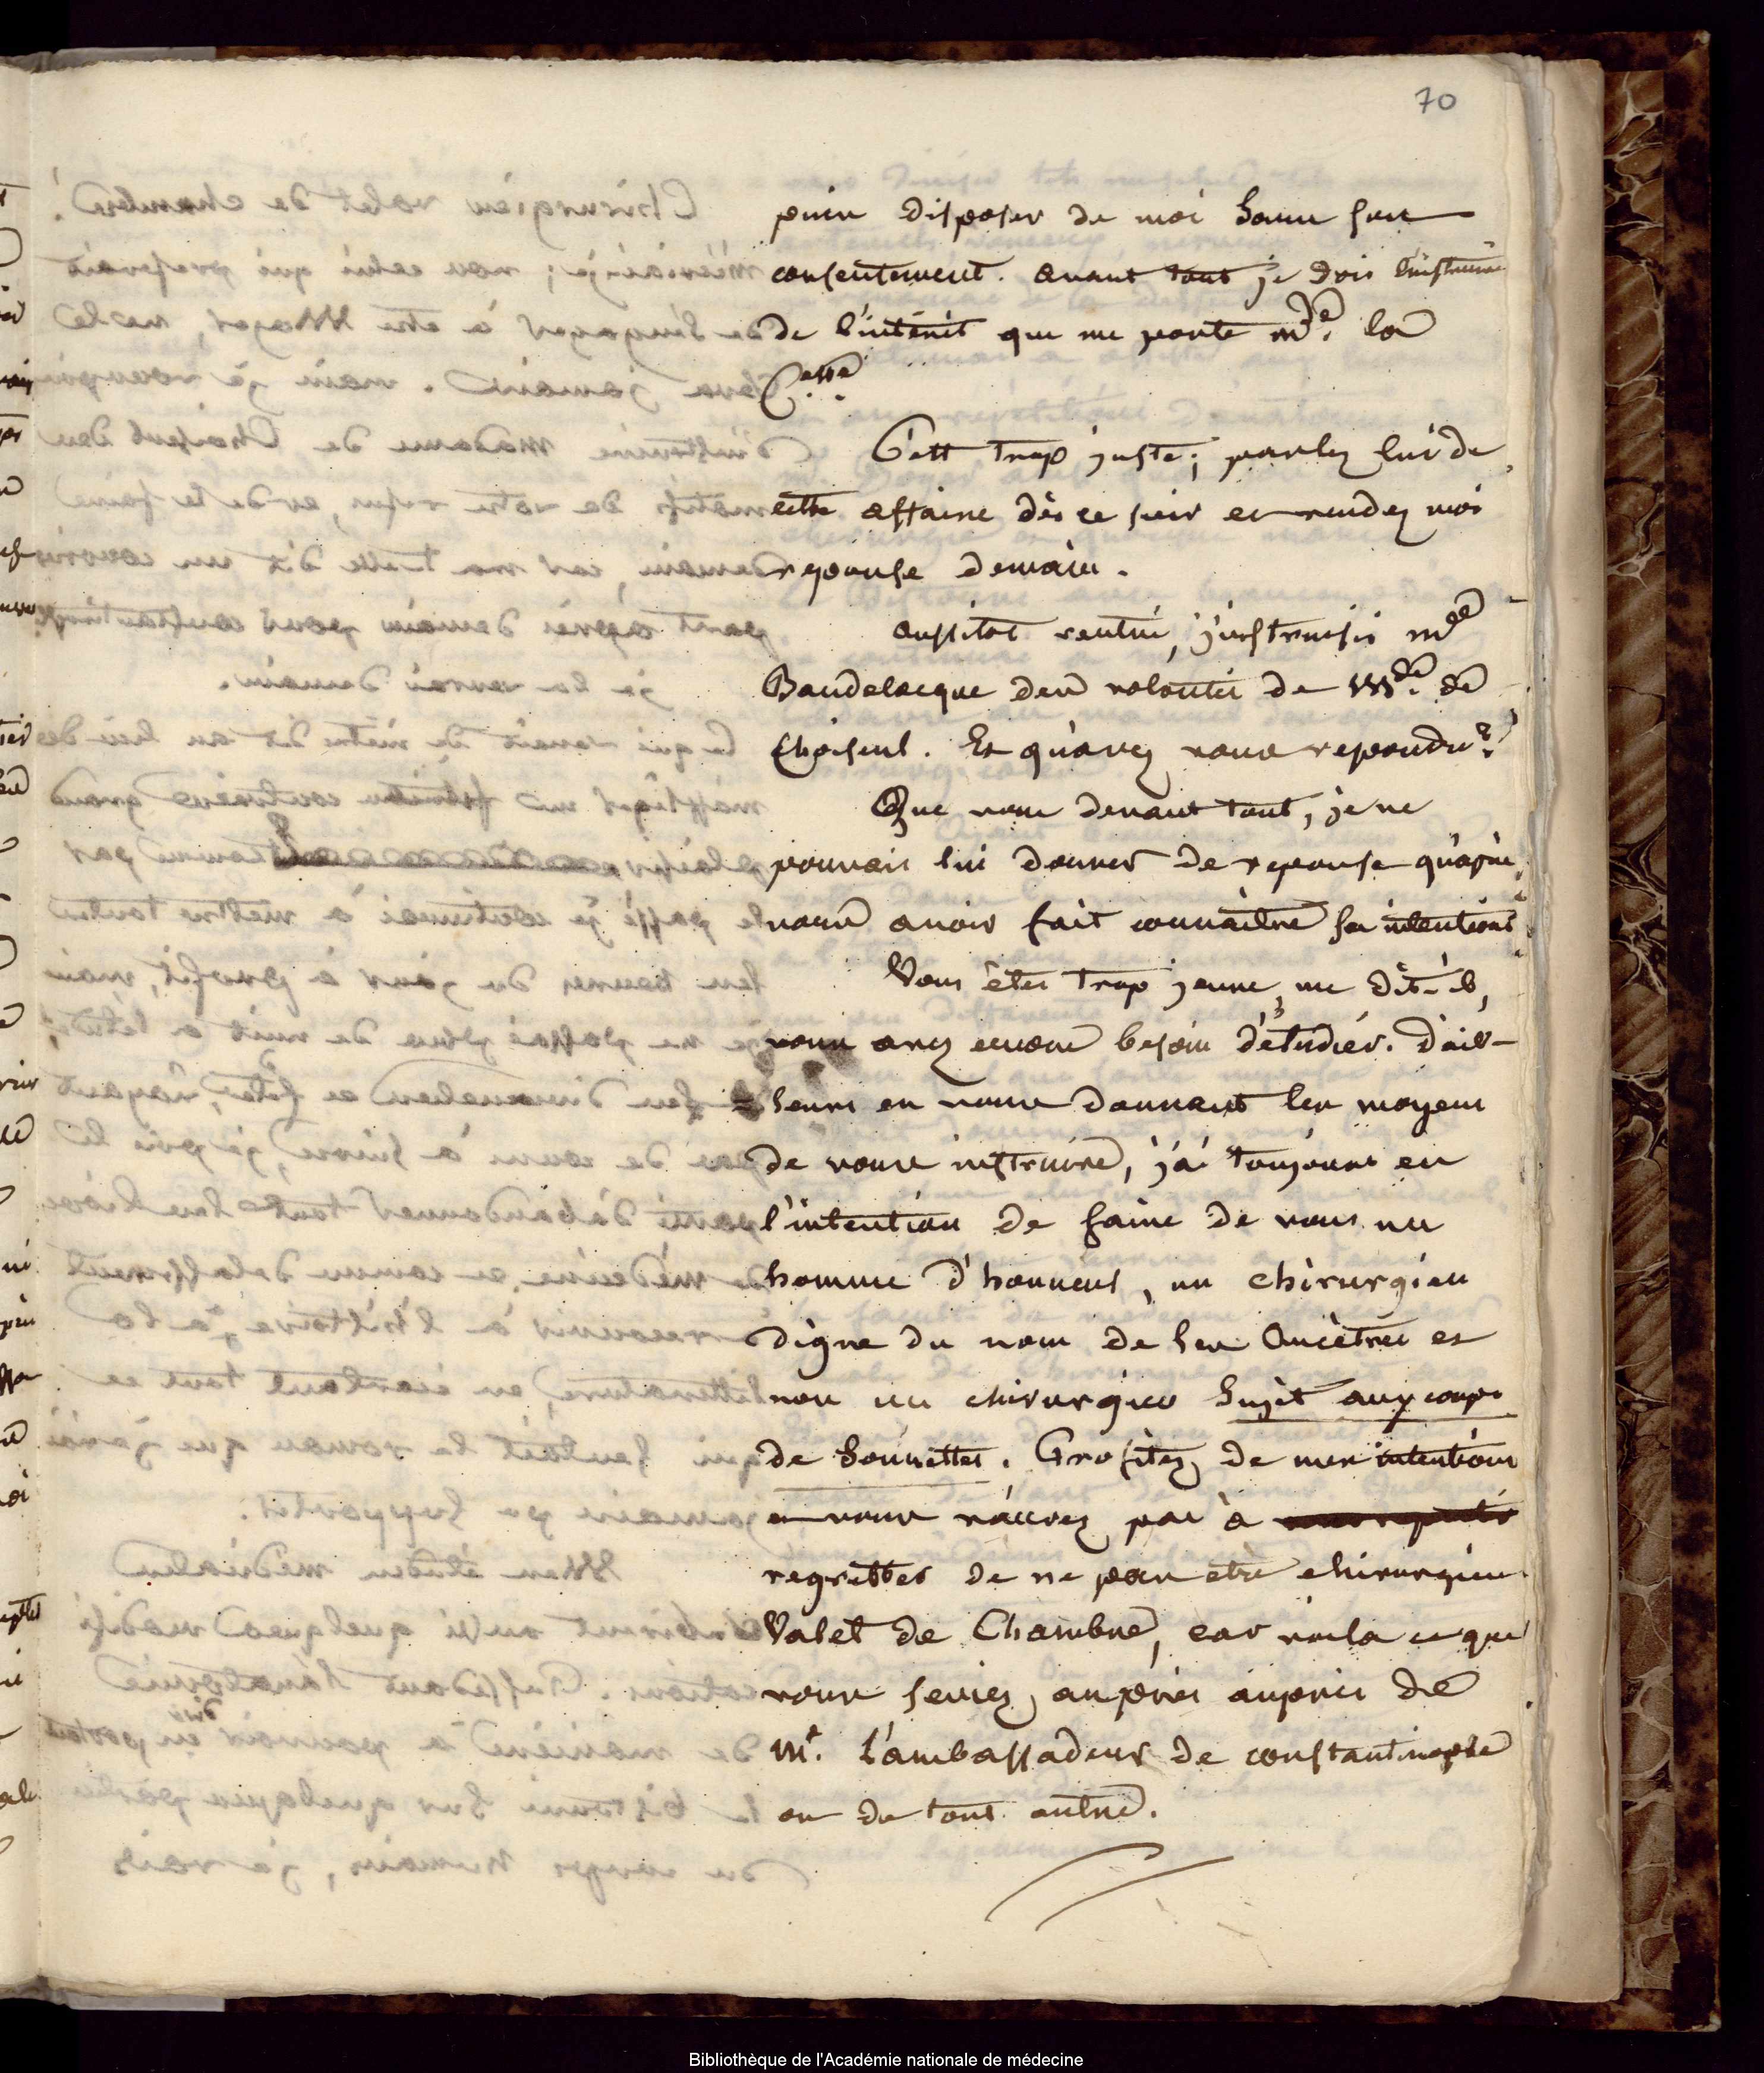 70
puisse disposer de moi sans son
consentement. avant tout je dois l'instruire
de l'intérêt que me porte mde. la
Ctesse.
C'est trop juste; parlez lui de
cette affaire dès ce soir et rendez moi
reponse demain.
aussitot rentré, j'instruisis mr
Baudelocque des volontés de Mde. de
Choiseul. Et qu'avez vous repondu?
Que vous devant tout, je ne
pouvais lui donner de reponse qu'après
vous avoir fait connaitre ses intentions
Vous êtes trop jeune, me dit-il,
vous avez encore besoin d'étudier. D'ail-
leurs en vous donnant les moyens
de vous instruire, j'ai toujours eu
l'intention de faire de vous un
homme d'honneur, un chirurgien
digne du nom de ses Ancètres et
non un chirurgien Sujet aux coups
de sonnettes. Profitez de mes intentions
et vous n'aurez pas à
regretter de ne pas etre chirurgien
Valet de Chambre, car voila ce que
vous seriez auprès auprès de
Mr. L'ambassadeur de constantinople
ou de tout autre.
Bibliothèque de l'Académie nationale de médecine